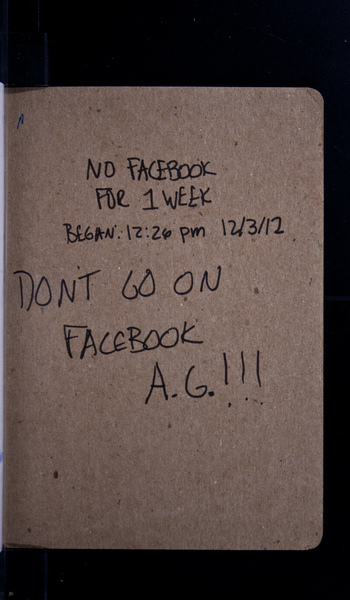 NO FACEBOOK
FOR 1 WEEK
BEGAN: 12:26 pm 12/3/12
DONT GO ON
FACEBOOK
A.G.!!!